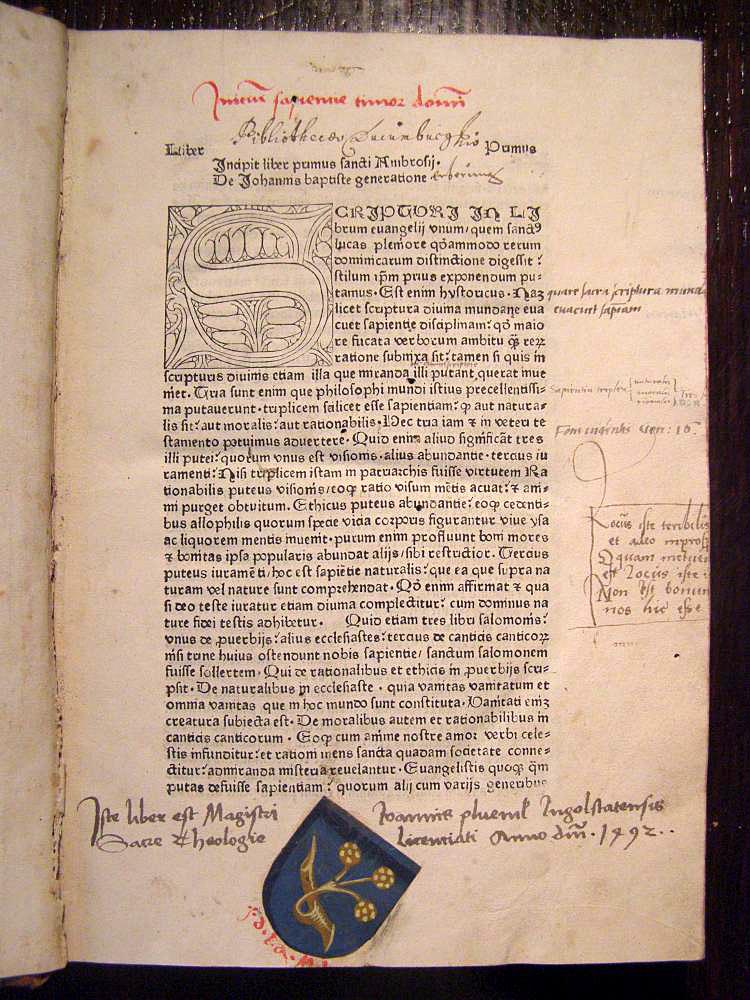 Iniciū sapiencie timor domī
Liber Primus
Incipit liber primus sancti Ambrosij.
De Johannis baptiste generatione
SCRIPTURI IN LI
brum euangelij vnum/quem sanctꝰ
lucas pleniore qđāmmodo rerum
dominicarum distinctione digessit:
stilum ipm prius exponendum pu-
tamus. Est enim hystoricus. Naz
licet scriptura diuina mundane eua
cuet sapientie disciplinam: qđ maio
re fucata verborum ambitu qꝫ reꝝ
ratione subnixa sit: tamen si quis in
scripturis diuinis etiam illa que miranda illi putant querat inue
niet. Tria sunt enim que philosophi mundi istius precellentissi-
ma putauerunt. triplicem scilicet esse sapientiam: qđ aut natura-
lis sit: aut moralis: aut rationabilis. Hec tria iam & in veteri te
stamento potuimus aduertere. Quid enim aliud significāt tres
illi putei: quorum vnus est visionis. alius abundantie. tercius iu
ramenti: Nisi triplicem istam in patriarchis fuisse virtutem Ra
tionabilis puteus visionis: eoqꝫ ratio visum mētis acuat: & ani-
mi purget obtuitum. Ethicus puteus abundantie: eoqꝫ cedenti-
bus allophilis quorum specie vicia corporis figurantur viue ysa
ac liquorem mentis inuenit. purum enim profluunt boni mores
& bonitas ipsa popularis abundat alijs/sibi restrictior. Tercius
puteus iuramēti/hoc est sapiētie naturalis: que ea que supra na
turam vel nature sunt comprehendat. Qđ enim affirmat & qua
si deo teste iuratur etiam diuina complectitur: cum dominus na
ture fidei testis adhibetur. Quid etiam tres libri salomonis:
vnus de ꝓuerbijs: alius ecclesiastes: tercius de canticis canticoꝝ
nisi trine huius ostendunt nobis sapientie/sanctum salomonem
fuisse sollertem. Qui de rationalibus et ethicis in ꝓuerbijs scri-
psit. De naturalibus in ecclesiaste. quia vanitas vanitatum et
omnia vanitas que in hoc mundo sunt constituta. Vanitati enīz
creatura subiecta est. De moralibus autem et rationabilibus in
canticis canticorum. Eoqꝫ cum anime nostre amor verbi cele-
stis infunditur: et rationi mens sancta quadam societate conne-
ctitur: admiranda misteria reuelantur. Euangelistis quoqꝫ qm
putas defuisse sapientiam: quorum alij cum varijs generibus
quare sacra scriptura
euacuet sapiam
Locus iste terribilis
Locus iste
Non est bonum
nos hic esse
Iste liber est Magistri Joannis Ingolstatensis
Sacre Theologie licentiati Anno dm̄. 1492..